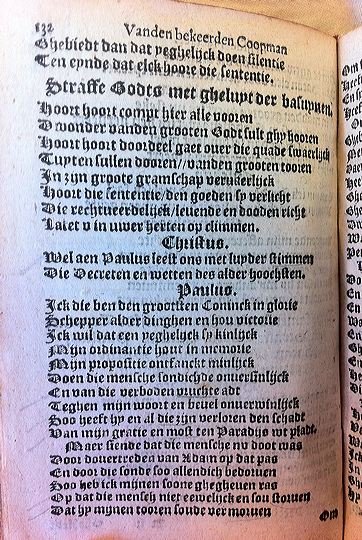 132 Vanden bekeerden Coopman
Ghebiedt dan dat yeghelijck doen silentie
Ten eynde dat elck hoore die sententie.
Straffe Godts met ghelupt der basuynen.
Hoort hoort compt hier alle vooren
D wonder vanden grooten Godt sult ghy hooren
Hoort hoort doordeel gaet over die quade swaerlijck
Tupten sullen dooren//vanden grooten tooren
In zijn groote gramschap vervaerlijck
Hoort die sententie/den goeden sy verlicht
Die rechtveerdelijck/levende en dooden richt
Latet v in uwer herten op climmen.
Christus.
Wel aen Paulus leest ons met luyder stimmen
Die Decreten en wetten des alder hoochsten.
Paulus.
Ick die ben den grootsten Coninck in glorie
Schepper alder dinghen en hou victorie
Ick wil dat een yeghelijck sy kinlijck
Mijn ordinantie hout in memorie
Mijn propositie ontfanckt minlijck
Doen die mensche sondichde onversinlijck
En van die verboden vruchte adt
Teghen mijn woort en bevel onverwinlijck
Soo heeft hy en al die zijn verloren den schadt
Van mijn gratie en most ten Paradijs wt pladt.
Maer siende dat die mensche nv door was
Door douertreden van Adam op dat pas
En door die sonde soo allendich bedorven
Soo heb ick mijnen soone ghegheven ras
Op dat die mensch niet eewelijck en sou storven
Dat hy mynen tooren soude ver morven
Om